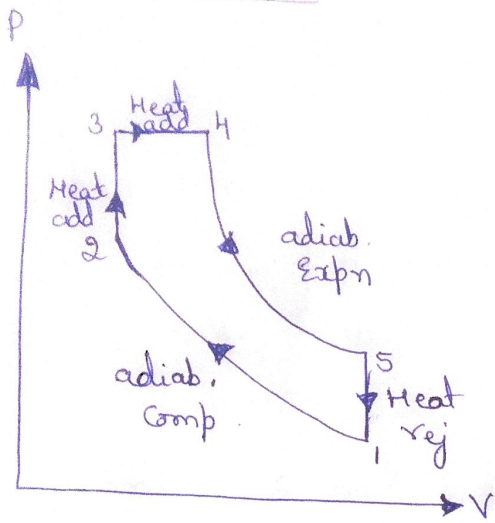 P
Heat
add
3
4
Heat
add
2
adiab.
Expn
adiab.
Comp
5
Heat
rej
1
V